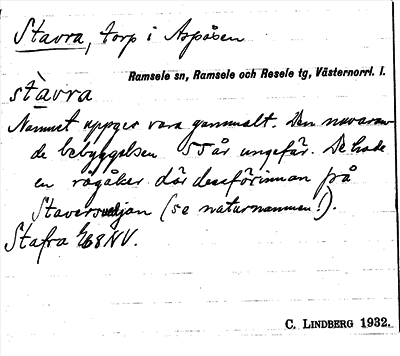 Stavra, torp i Aspåsen
Ramsele sn, Ramsele och Resele tg, Västernorrl. l.
stàvra
Namnet uppges vara gammalt. Den nuvaran-
de bebyggelsen 55 år ungefär. De hade
en rågåker där dessförinnan på
(se naturnamnen!).
Stafra 68 NV.
C. LINDBERG 1932.